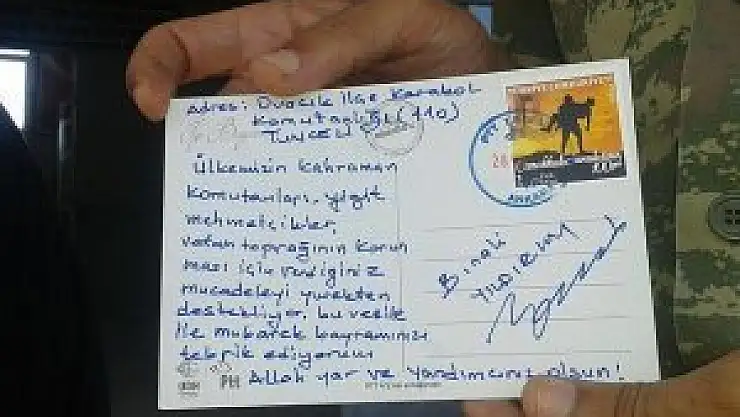 adres: Ovacık ilçe Karakol
Komutanlığı (110)
TUNCELİ
Ülkemizin kahraman
komutanları, yiğit
mehmetçikler,
vatan toprağının korun
ması için verdiğiniz
mücadeleyi yürekten
destekliyor, bu vesile
ile mübarek bayramınızı
tebrik ediyorum
Allah yar ve yardımcınız olsun!
Binali
YILDIRIM
PTT
28
ANKARA